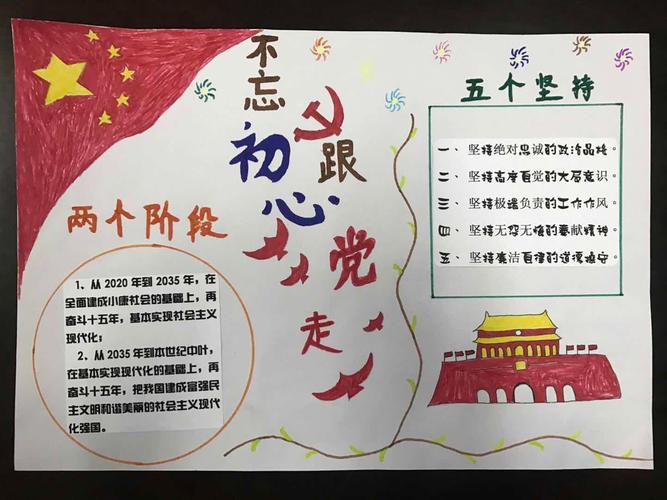 不忘
初心
跟
党
走
两个阶段
1、从 2020 年到 2035 年，在
全面建成小康社会的基础上，再
奋斗十五年，基本实现社会主义
现代化；
2、从 2035 年到本世纪中叶，
在基本实现现代化的基础上，再
奋斗十五年，把我国建成富强民
主文明和谐美丽的社会主义现代
化强国。
五个坚持
一、坚持绝对忠诚的政治品格。
二、坚持高度自觉的大局意识
三、坚持极端负责的工作作风
四、坚持无怨无悔的奉献精神
五、坚持廉洁自律的道德操守。